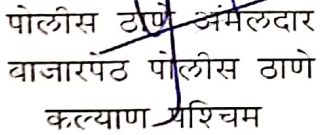 पोलीस ठाणे अंमलदार
बाजारपेठ पोलीस ठाणे
कल्याण पश्चिम